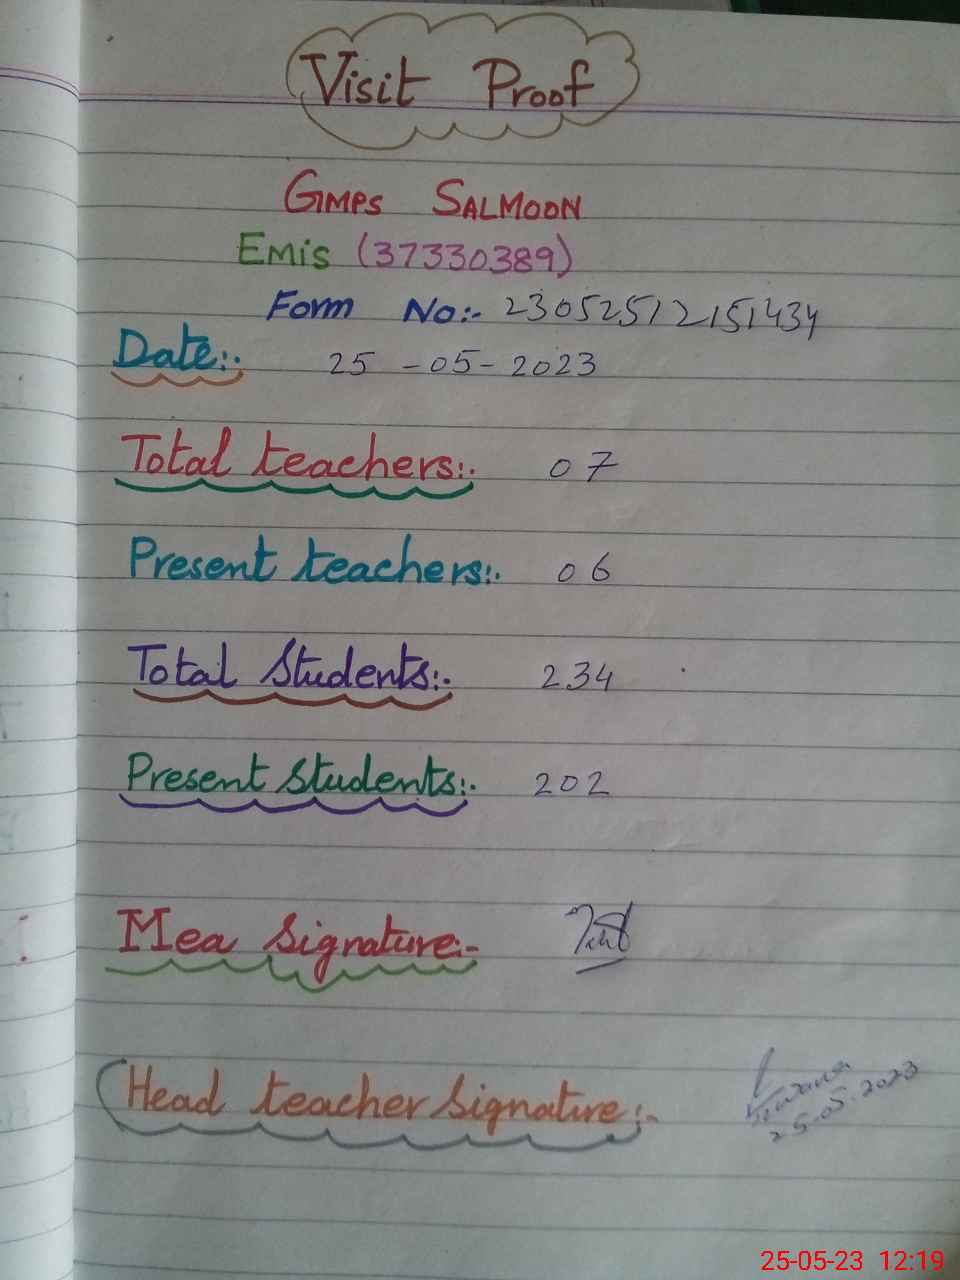 Visit Proof
GMPS SALMOON
EMIS (37330389)
Form No:- 23052512151434
Date:. 25-05-2023
Total teachers:. 07
Present teachers:. 06
Total Students:. 234
Present Students:. 202
Mea Signature:-
Head teacher Signature:-
25.05.2023
25-05-23 12:19